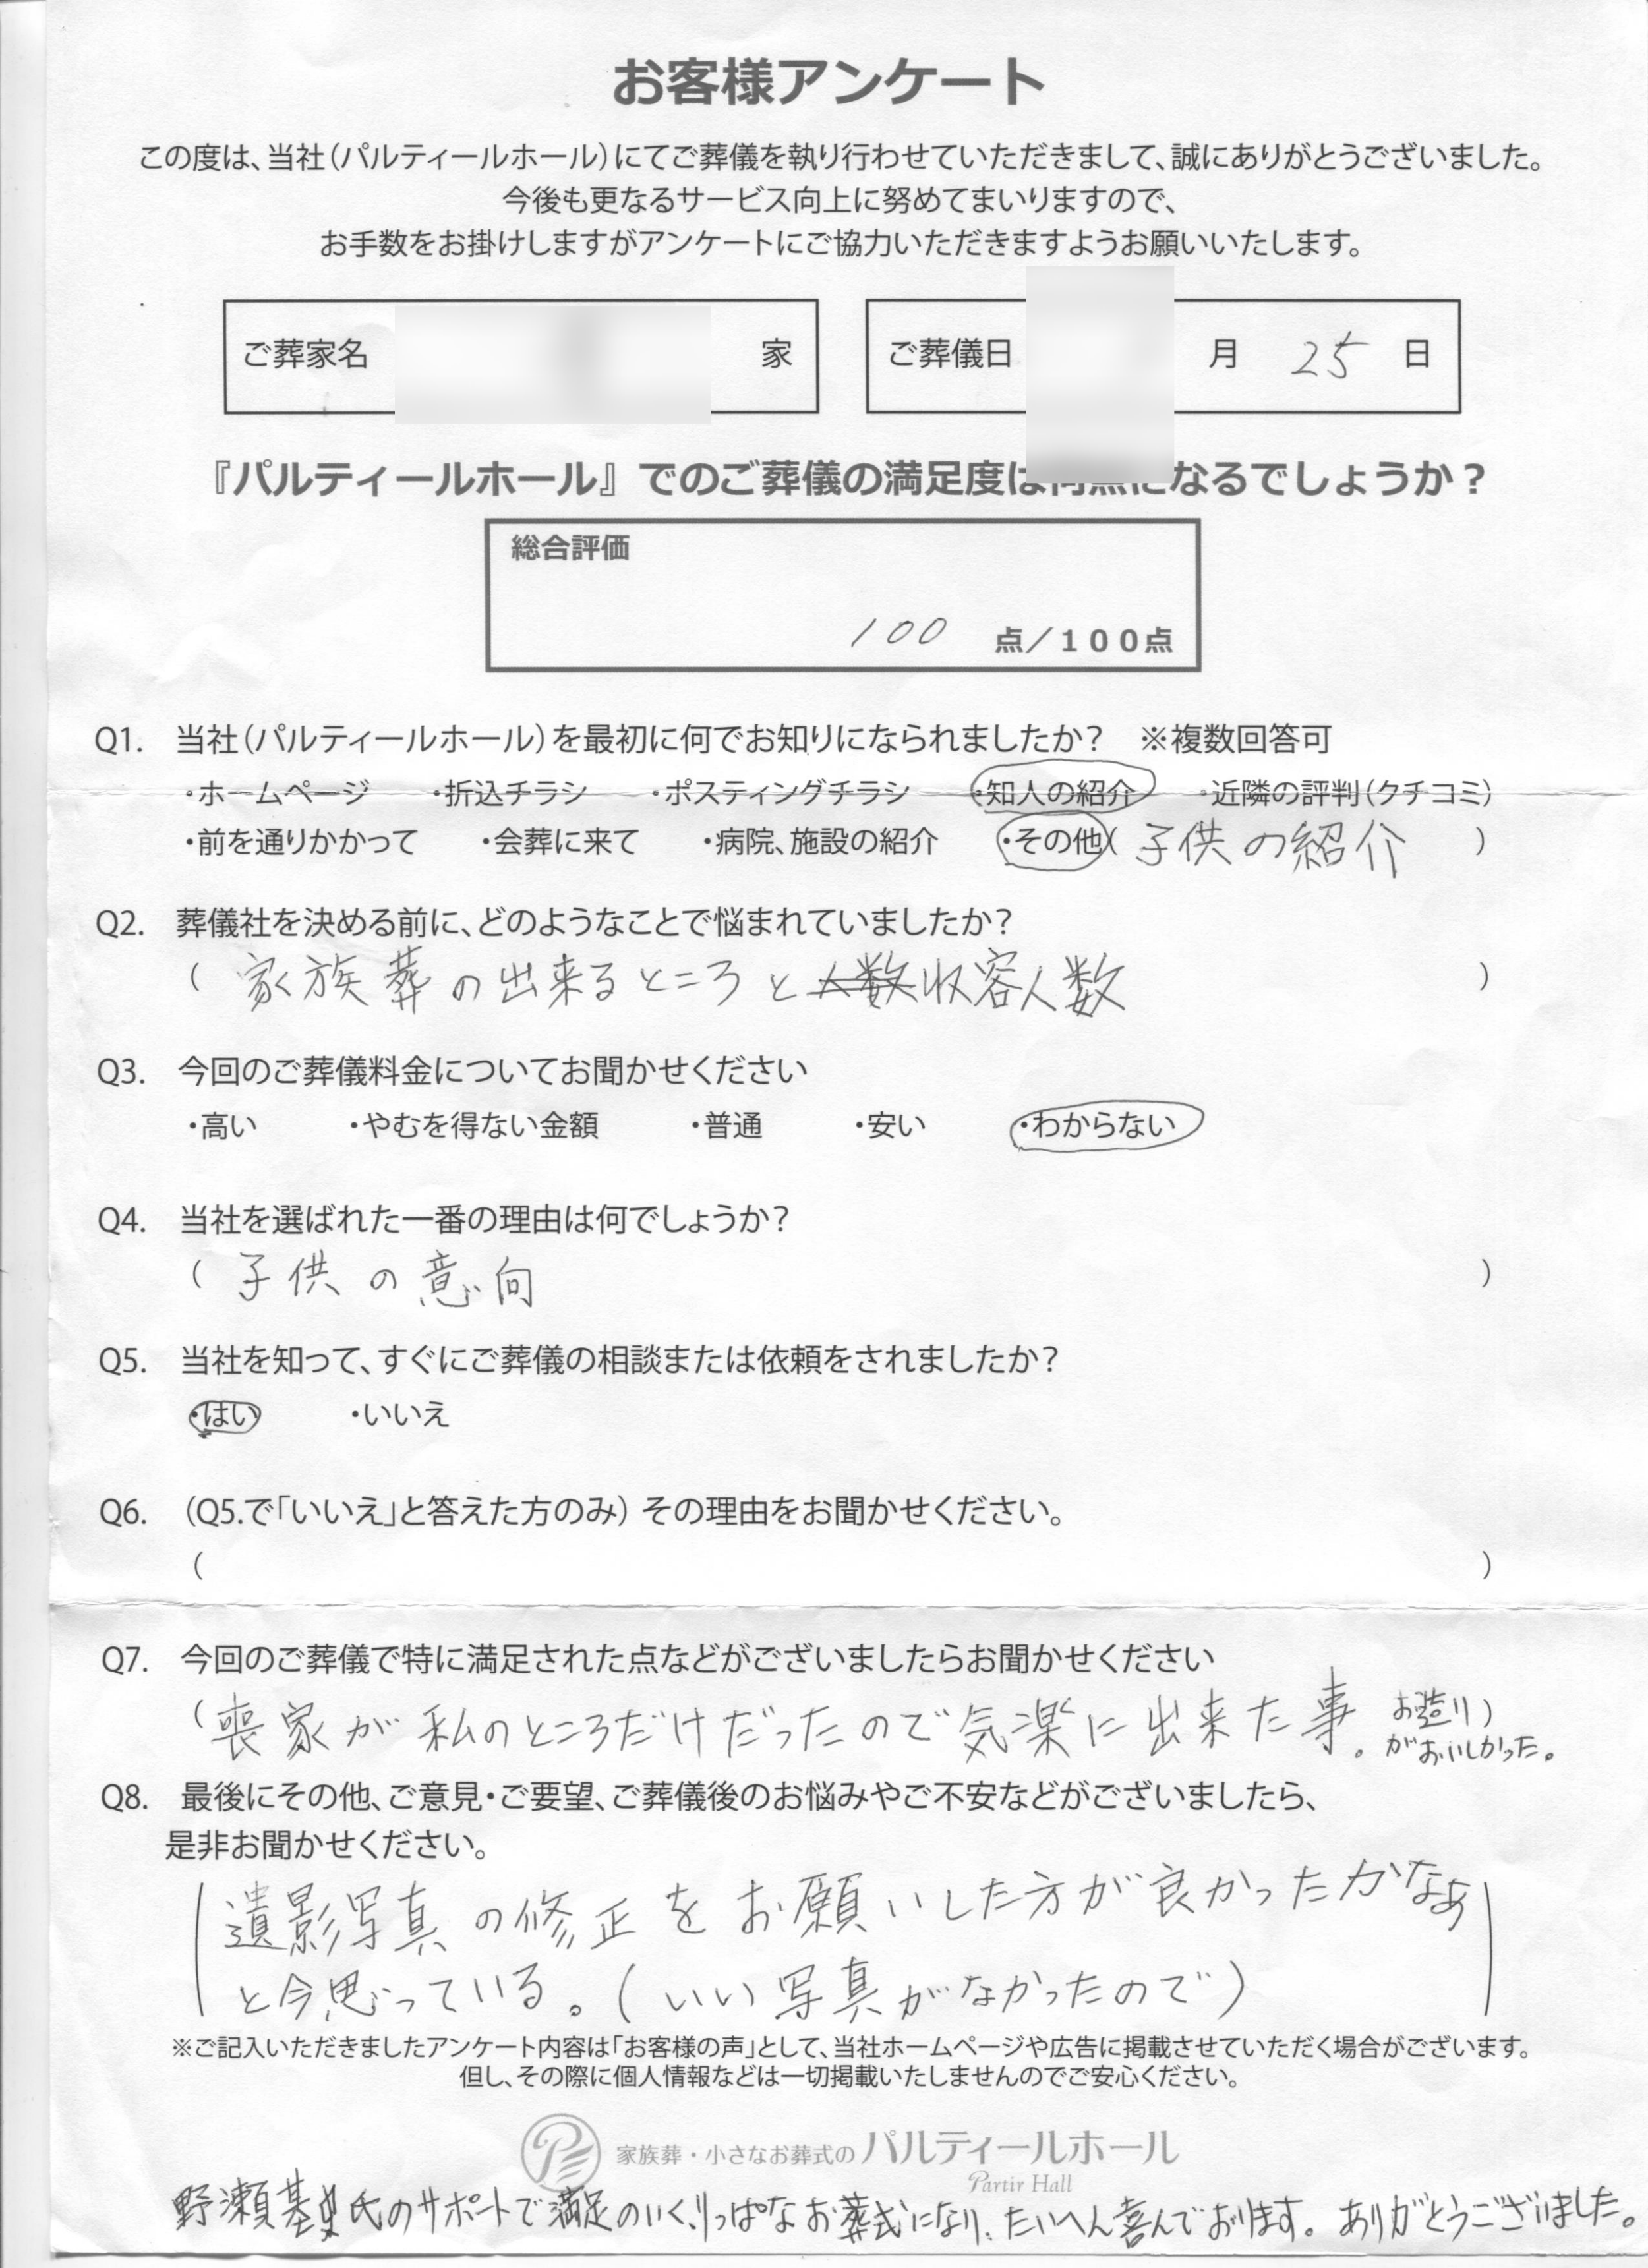 お客様アンケート
この度は、当社(パルティールホール)にてご葬儀を執り行わせていただきまして、誠にありがとうございました。
今後も更なるサービス向上に努めてまいりますので、
お手数をお掛けしますがアンケートにご協力いただきますようお願いいたします。
ご葬家名 家 ご葬儀日 月 25 日
『パルティールホール』でのご葬儀の満足度は何点になるでしょうか?
総合評価
100 点/100点
Q1. 当社(パルティールホール)を最初に何でお知りになられましたか? ※複数回答可
・ホームページ ・折込チラシ ・ポスティングチラシ ・知人の紹介 ・近隣の評判(クチコミ)
・前を通りかかって ・会葬に来て ・病院、施設の紹介 ・その他( 子供の紹介 )
Q2. 葬儀社を決める前に、どのようなことで悩まれていましたか?
( 家族葬の出来るところと人数収容人数 )
Q3. 今回のご葬儀料金についてお聞かせください
・高い ・やむを得ない金額 ・普通 ・安い ・わからない
Q4. 当社を選ばれた一番の理由は何でしょうか?
( 子供の意向 )
Q5. 当社を知って、すぐにご葬儀の相談または依頼をされましたか?
・はい ・いいえ
Q6. (Q5.で「いいえ」と答えた方のみ) その理由をお聞かせください。
( )
Q7. 今回のご葬儀で特に満足された点などがございましたらお聞かせください
( 喪家が私のところだけだったので気楽に出来た事。お造り )
がおいしかった。
Q8. 最後にその他、ご意見・ご要望、ご葬儀後のお悩みやご不安などがございましたら、
是非お聞かせください。
( 遺影写真の修正をお願いした方が良かったかなぁ
と今思っている。(いい写真がなかったので) )
※ご記入いただきましたアンケート内容は「お客様の声」として、当社ホームページや広告に掲載させていただく場合がございます。
但し、その際に個人情報などは一切掲載いたしませんのでご安心ください。
家族葬・小さなお葬式の パルティールホール
Partir Hall
野瀬基史氏のサポートで満足のいく、りっぱなお葬式になり、たいへん喜んでおります。ありがとうございました。